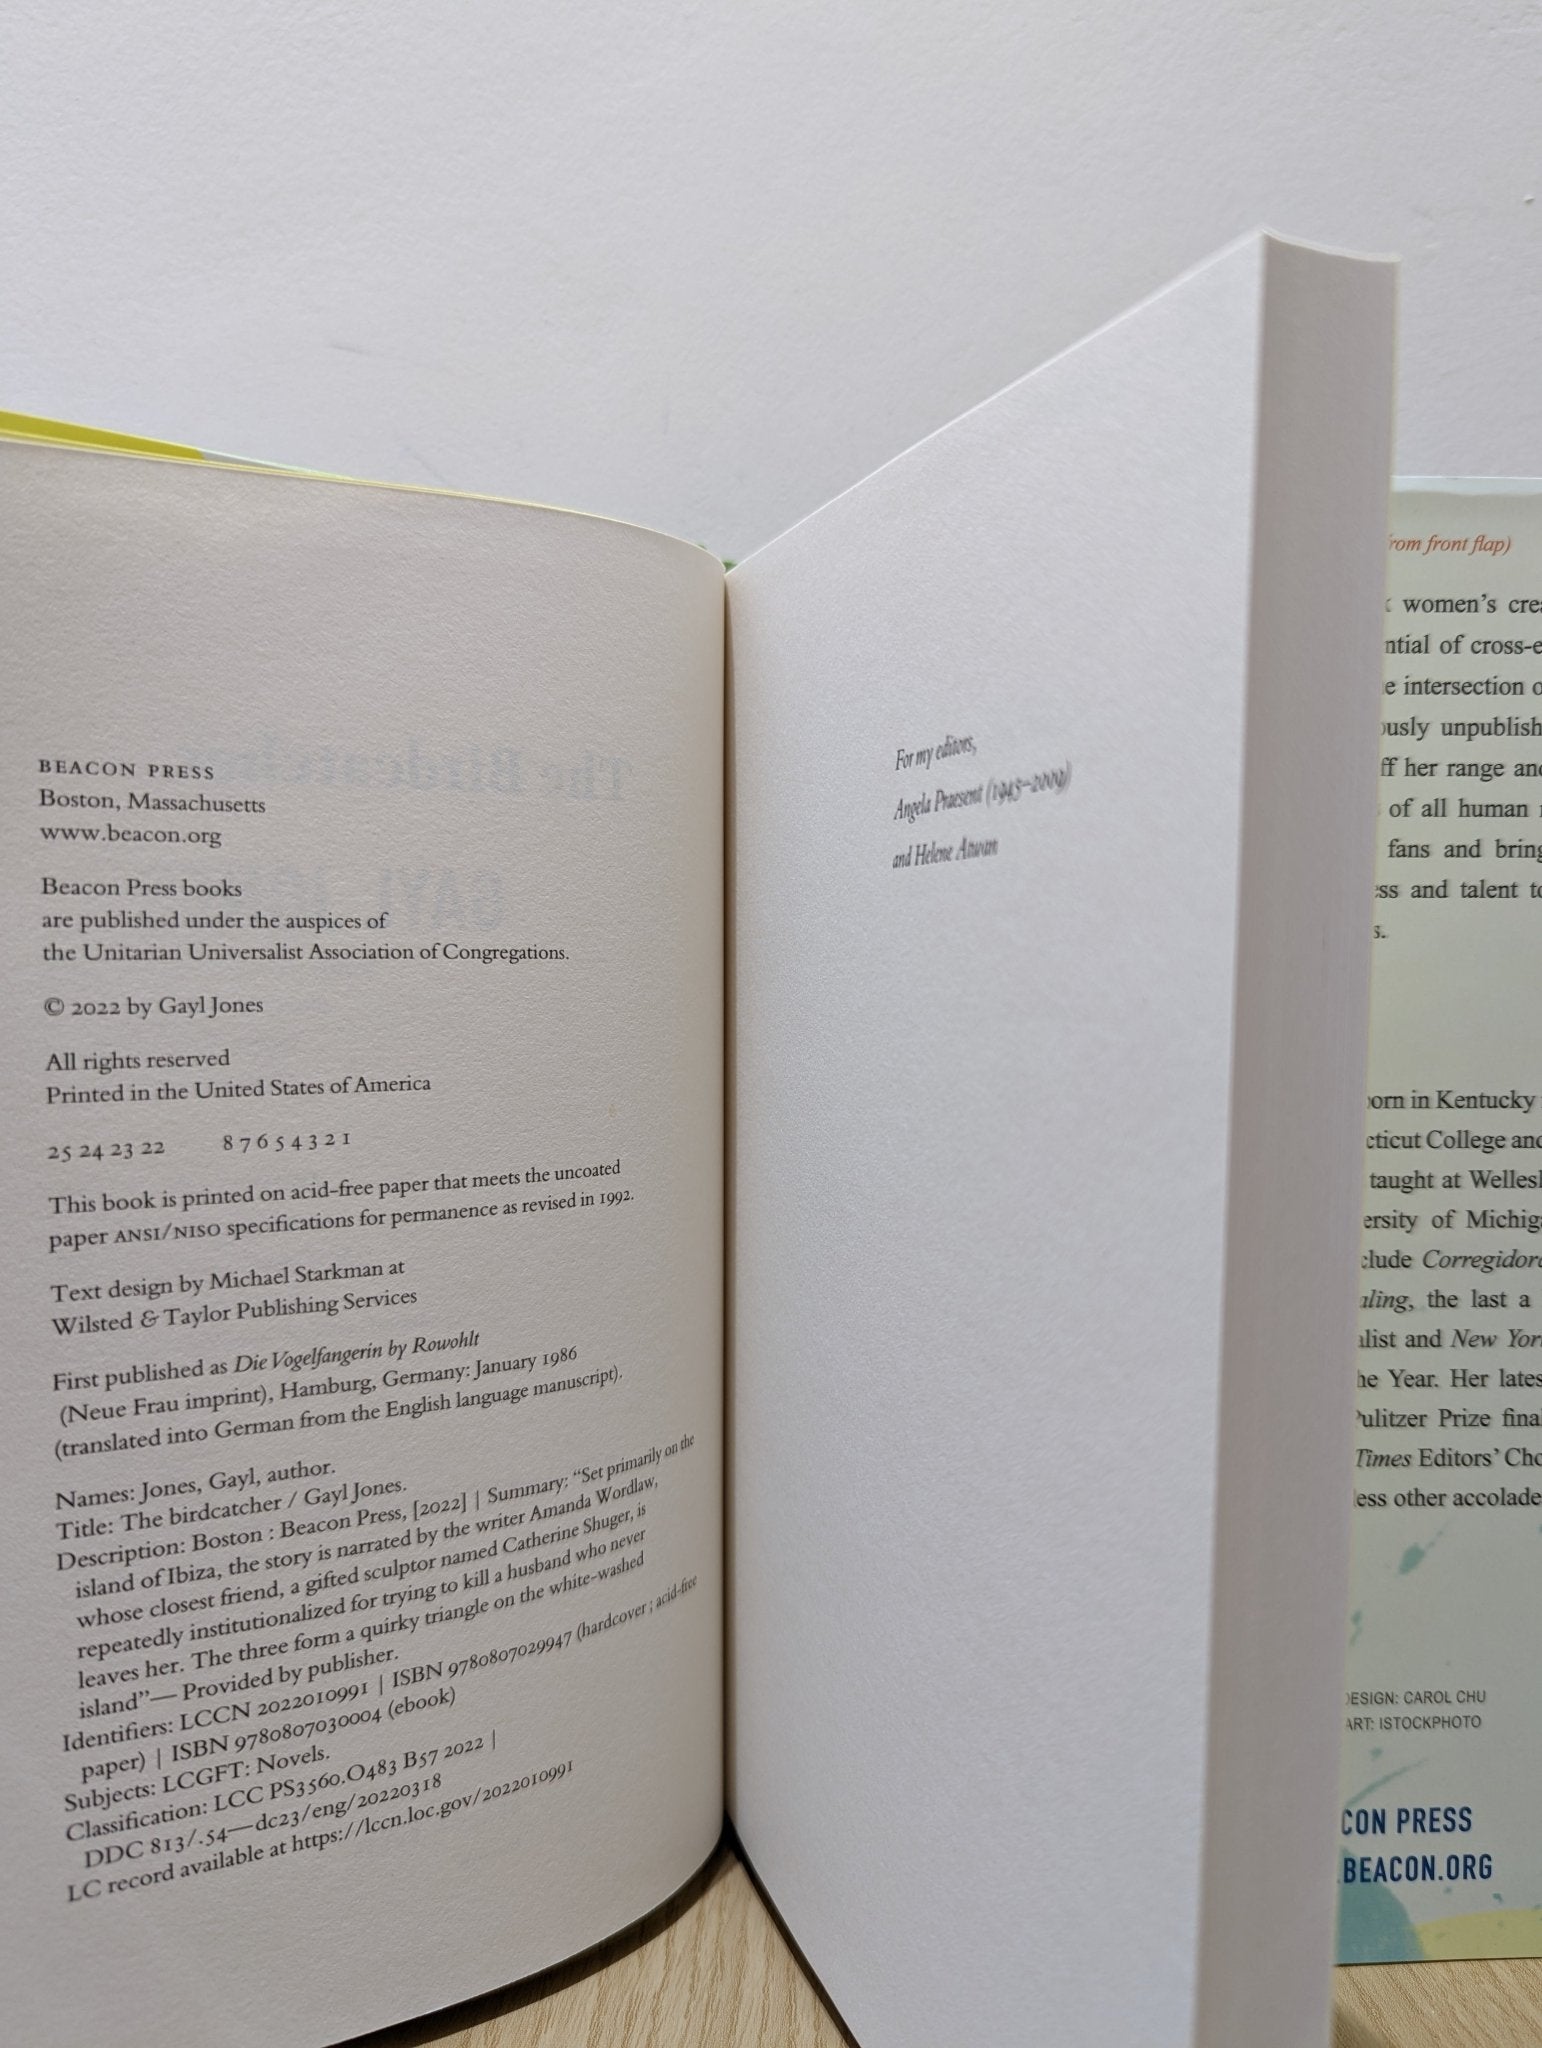 BEACON PRESS
Boston, Massachusetts
www.beacon.org
Beacon Press books
are published under the auspices of
the Unitarian Universalist Association of Congregations.
© 2022 by Gayl Jones
All rights reserved
Printed in the United States of America
25 24 23 22 8 7 6 5 4 3 2 1
This book is printed on acid-free paper that meets the uncoated
paper ANSI/NISO specifications for permanence as revised in 1992.
Text design by Michael Starkman at
Wilsted & Taylor Publishing Services
First published as Die Vogelfangerin by Rowohlt
(Neue Frau imprint), Hamburg, Germany: January 1986
(translated into German from the English language manuscript).
Names: Jones, Gayl, author.
Title: The birdcatcher / Gayl Jones.
Description: Boston : Beacon Press, [2022] | Summary: “Set primarily on the
island of Ibiza, the story is narrated by the writer Amanda Wordlaw,
whose closest friend, a gifted sculptor named Catherine Shuger, is
repeatedly institutionalized for trying to kill a husband who never
leaves her. The three form a quirky triangle on the white-washed
island”— Provided by publisher.
Identifiers: LCCN 2022010991 | ISBN 9780807029947 (hardcover ; acid-free
paper) | ISBN 9780807030004 (ebook)
Subjects: LCGFT: Novels.
Classification: LCC PS3560.O483 B57 2022 |
DDC 813/.54—dc23/eng/20220318
LC record available at https://lccn.loc.gov/2022010991
For my editors,
Angela Praesent (1945–2009)
and Helene Atwan
from front flap)
women’s
of cross-
intersection
unpublish
her range and
of all human
fans and bring
and talent to
born in Kentucky
College and
taught at
of
Corregidora
the last a
and New
Year. Her
Pulitzer Prize
Times Editors’
other
DESIGN: CAROL CHU
ART: ISTOCKPHOTO
CON PRESS
BEACON.ORG